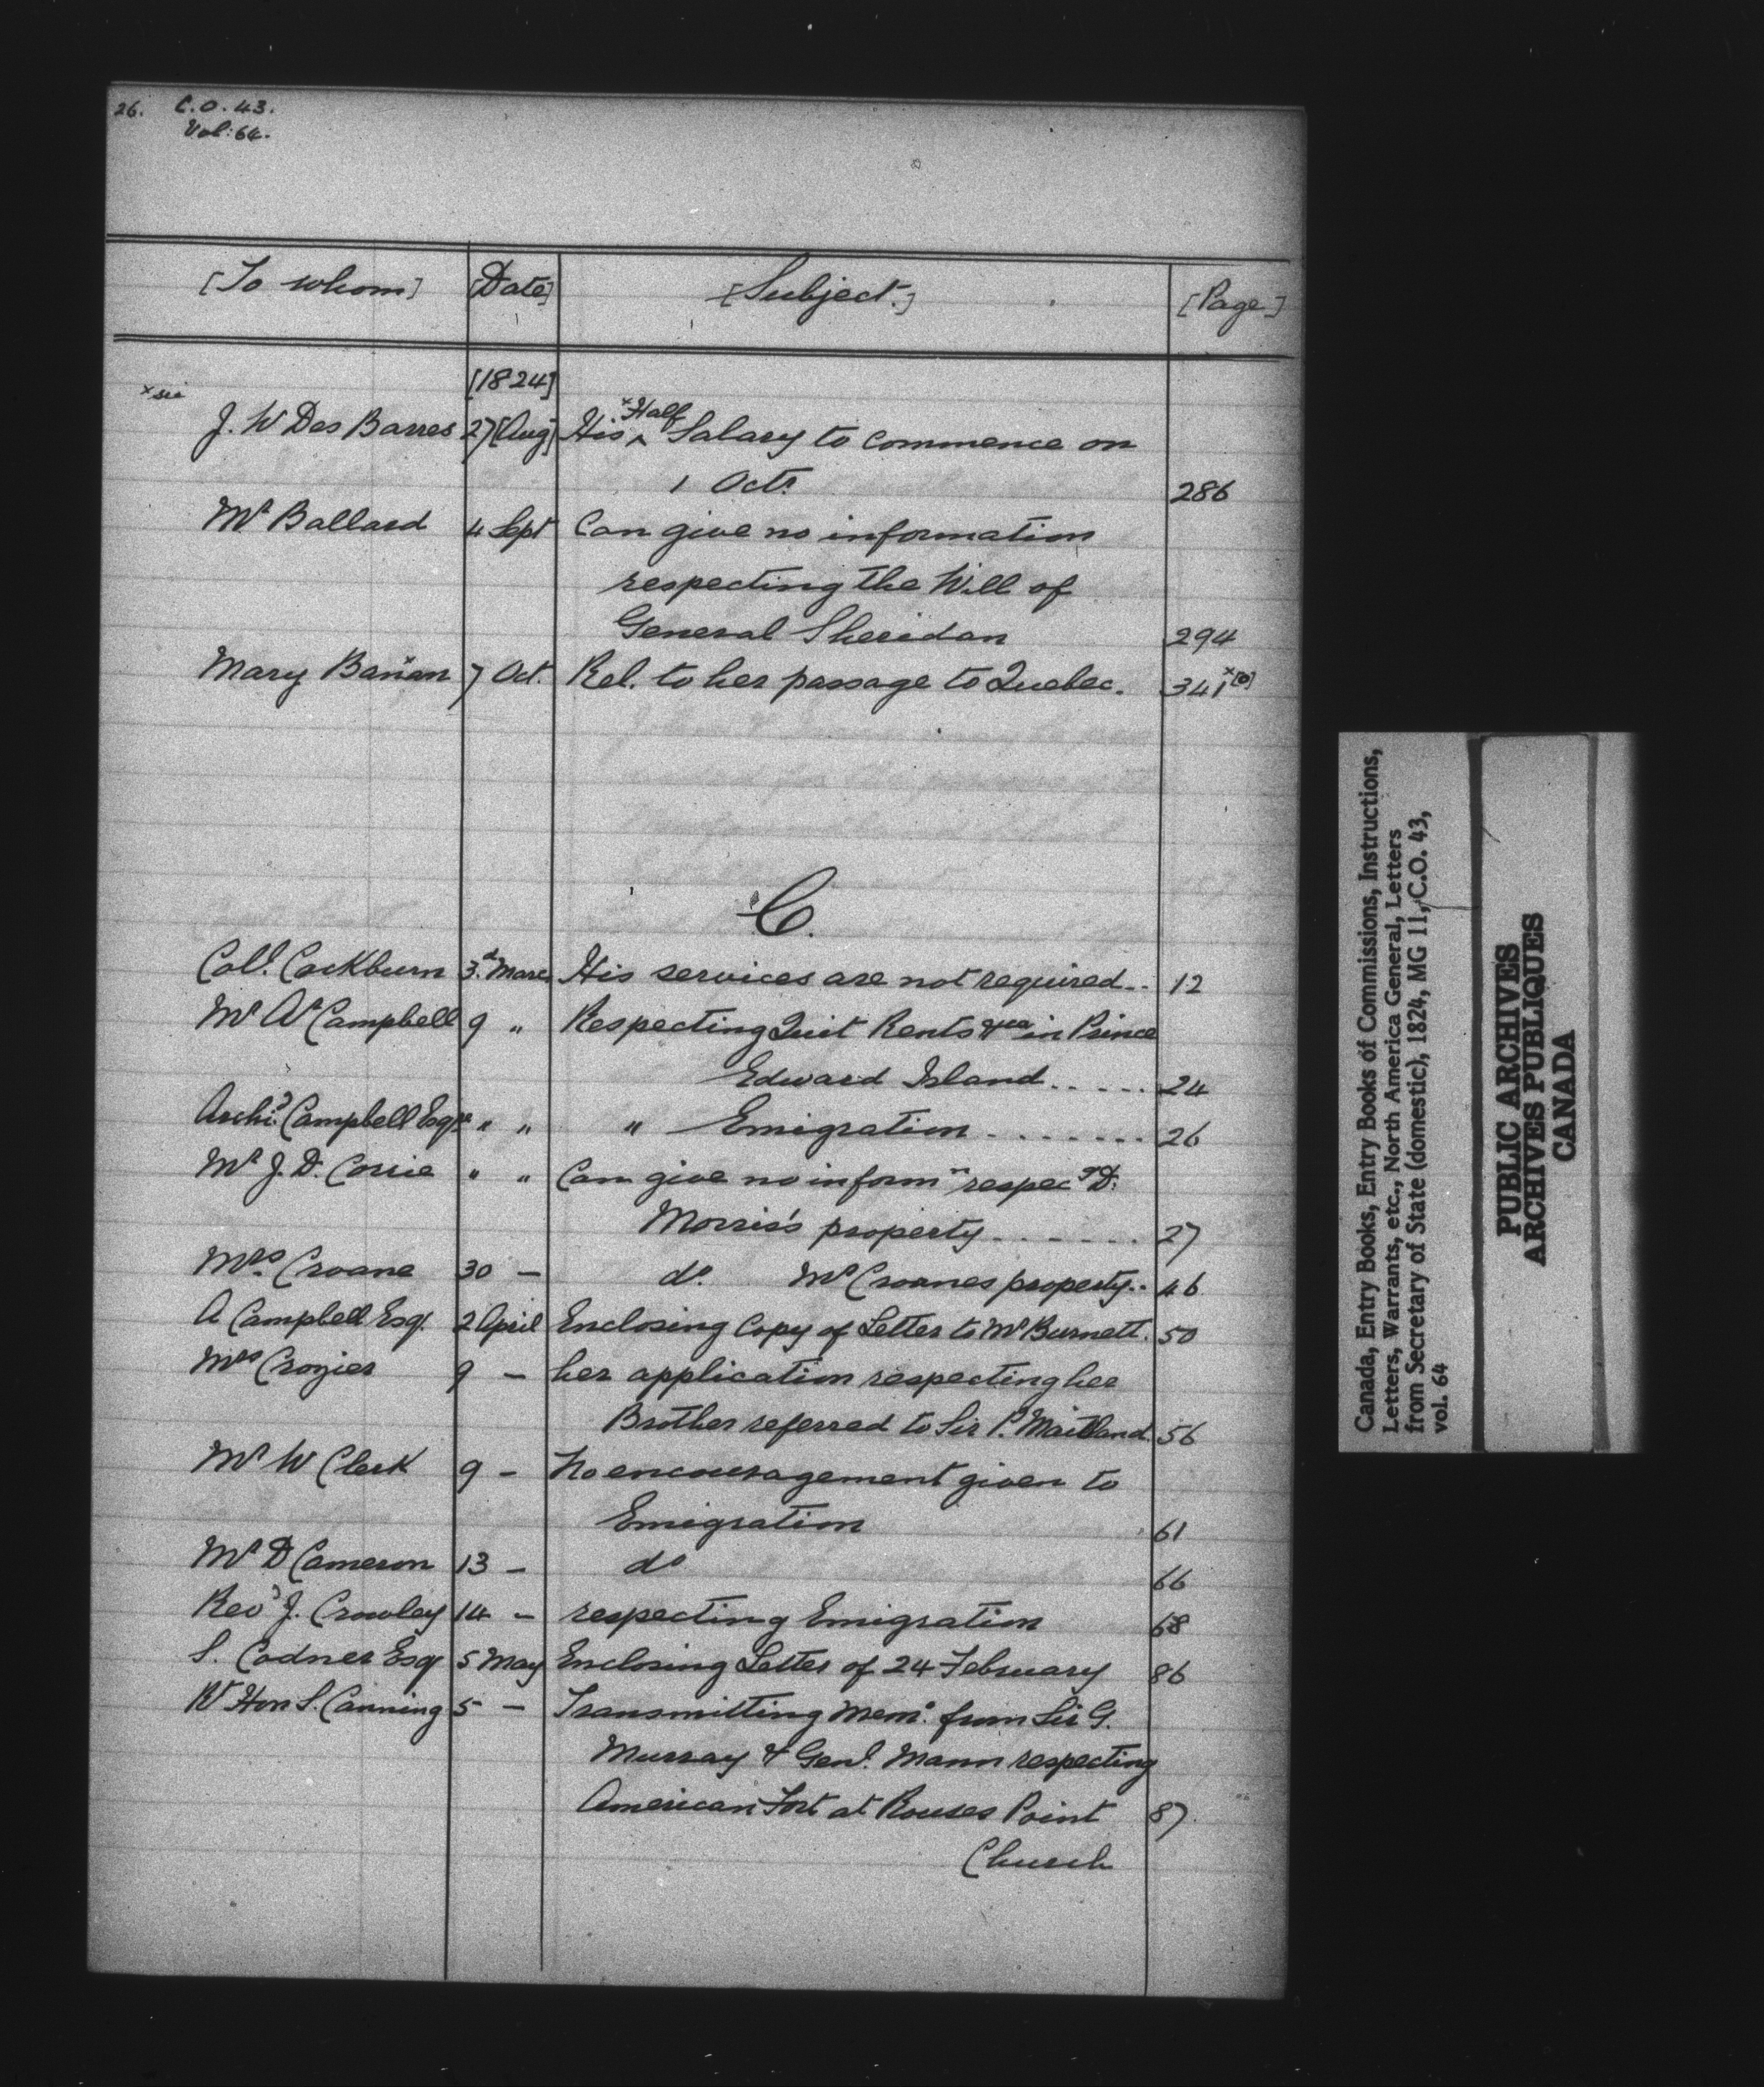 26. C.O. 43.
Vol: 64.
[To whom] [Date] [Subject.] [Page]
[1824]
x sic
J. W Des Barres 27 [Aug] His ^ xHalf Salary to commence on
1 Octr 286
Mr Ballard 4 Sept Can give no information
respecting the Will of
General Sheridan 294
Mary Barxan 7 Oct. Rel. to her passage to Quebec. 341 x[0]
C.
Coll. Cockburn 3.d March His services are not required.. 12
Mr Ar Campbell 9 " Respecting Quit Rents &ca in Prince
Edward Island..... 24
Archd. Campbell Esqr " " " Emigration....... 26
Mr J. D. Corrie " " Can give no informn respecg D:
Morris's property....... 27
Mrs. Croane 30 — do. Mr Croanes property.. 46
A Campbell Esq. 2 April Enclosing Copy of Letter to Mr Burnett. 50
Mrs Crozier 9 — her application respecting her
Brother referred to Sir P. Maitland. 56
Mr W Clark 9 — No encouragement given to
Emigration 61
Mr D Cameron 13 — do 66
Revd J. Crowley 14 — respecting Emigration 68
S. Codner Esq 5 May Enclosing Letter of 24 February 86
Rt Hon S. Canning 5 — Transmitting Memo. from Sir G.
Murray & Genl. Mann respecting
American Fort at Rouses Point 87.
Church
Canada, Entry Books, Entry Books of Commissions, Instructions,
Letters, Warrants, etc., North America General, Letters
from Secretary of State (domestic), 1824, MG 11, C.O. 43,
vol. 64
PUBLIC ARCHIVES
ARCHIVES PUBLIQUES
CANADA